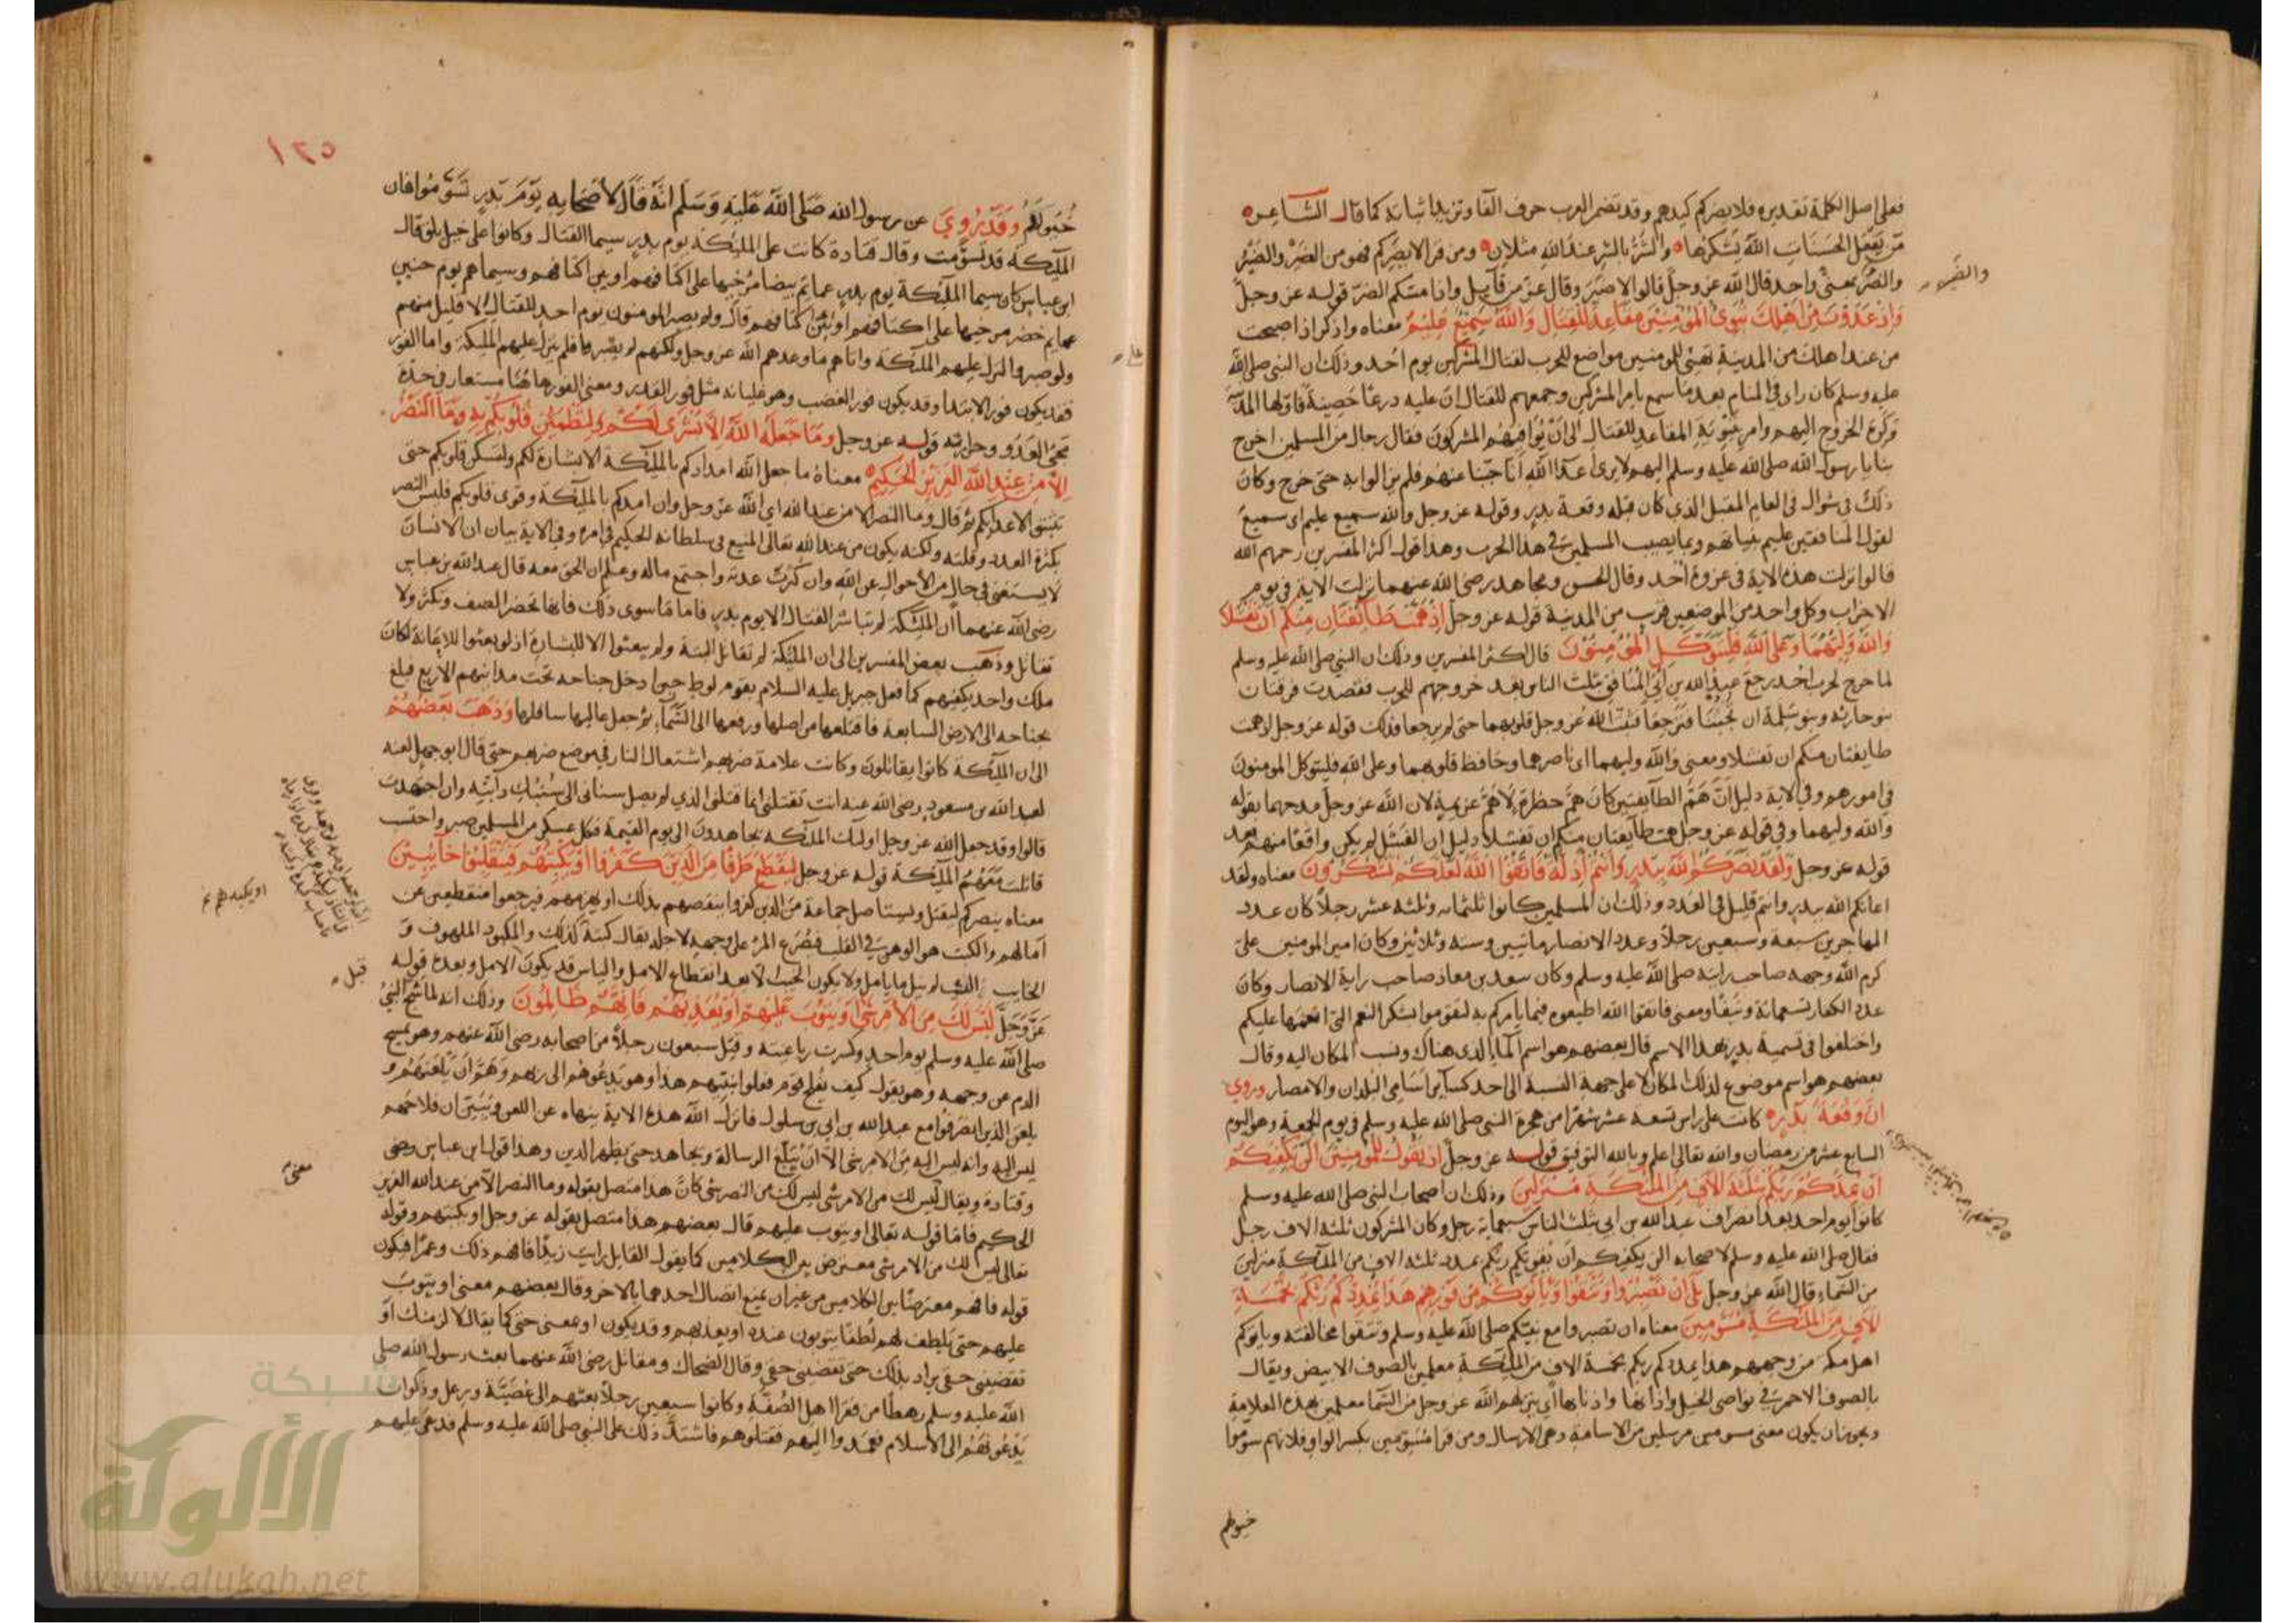 فعلى اصل الكلمة تقديره فلا يضركم كيدهم وقد تضمر العرب حرف الفا وتزيدها ثباتة كما قال الشاعر
من يفعل الحسنات الله يشكرها والشر بالشر عند الله مثلان ومن قرا لا يضركم فهو من الضر والضير
والضر بمعنى واحد قال الله عز وجل قالوا لا ضير وقال عز من قائل واذا مسكم الضر قوله عز وجل
واذ غدوت من اهلك تبوئ المؤمنين مقاعد للقتال والله سميع عليم معناه واذكر اذا اصبحت
من عند اهلك من المدينة تهيئ للمومنين مواضع للحرب لقتال المشركين يوم احد وذلك ان النبي صلى الله
عليه وسلم كان راى في المنام بعد ما سمع بامر المشركين وجمعهم للقتال ان عليه درعا حصينة فاولها المدينة
فكره الخروج اليهم وامر بتبوئة المقاعد للقتال الى ان يوافيهم المشركون فقال رجال من المسلمين اخرج
بنا يا رسول الله صلى الله عليه وسلم اليهم لا يرى اعدا الله انا جبنا عنهم فلم يزالوا به حتى خرج وكان
ذلك في شوال في العام المقبل الذي كان قبله وقعة بدر وقوله عز وجل والله سميع عليم اى سميع
لقول المنافقين عليم بنياتهم وبما يصيب المسلمين في هذا الحرب وهذا قول اكثر المفسرين رحمهم الله
قالوا نزلت هذه الاية في غزوة احد وقال الحسن ومجاهد رضي الله عنهما نزلت الاية في يوم
الاحزاب وكل واحد من الموضعين قرب من المدينة قوله عز وجل اذ همت طائفتان منكم ان تفشلا
والله وليهما وعلى الله فليتوكل المؤمنون قال اكثر المفسرين وذلك ان النبي صلى الله عليه وسلم
لما خرج لحرب احد رجع عبد الله بن ابي المنافق بثلث الناس بعد خروجهم للحرب فقصدت فرقتان
بنو حارثة وبنو سلمة ان تجبنا فترجعا فثبت الله عز وجل قلوبهما حتى لم يرجعا فذلك قوله عز وجل اذ همت
طايفتان منكم ان تفشلا ومعنى والله وليهما اى ناصرهما وحافظ قلوبهما وعلى الله فليتوكل المومنون
في امورهم وفي الاية دليل ان هم الطائفتين كان هم خطرة لا هم عزيمة لان الله عز وجل مدحهما بقوله
والله وليهما وفي قوله عز وجل همت طائفتان منكم ان تفشلا دليل ان الفشل لم يكن واقعا منهم بعد
قوله عز وجل ولقد نصركم الله ببدر وانتم اذلة فاتقوا الله لعلكم تشكرون معناه ولقد
اعانكم الله ببدر وانتم قليل في العدد وذلك ان المسلمين كانوا ثلثمائه وثلثه عشر رجلا كان عدد
المهاجرين سبعة وسبعين رجلا وعدد الانصار مائتين وستة وثلاثين وكان امير المومنين على
كرم الله وجهه صاحب راية صلى الله عليه وسلم وكان سعد بن معاذ صاحب راية الانصار وكان
عدد الكفار تسعمائة ونيفا ومعنى فاتقوا الله اطيعوه فيما يامركم به لتقوموا بشكر النعم التي انعمها عليكم
واختلفوا في تسمية بدر بهذا الاسم قال بعضهم هو اسم الماء الذى هناك ونسب المكان اليه وقال
بعضهم هو اسم موضوع لذلك المكان لا على جهة النسبة الى احد كسائر اسامي البلدان والامصار وروي
ان وقعة بدر كانت على راس تسعة عشر شهرا من هجرة النبي صلى الله عليه وسلم في يوم الجمعة وهو اليوم
السابع عشر من رمضان والله تعالى اعلم وبالله التوفيق قوله عز وجل اذ تقول للمؤمنين الن يكفيكم
ان يمدكم ربكم بثلثة الاف من الملئكة منزلين وذلك ان اصحاب النبي صلى الله عليه وسلم
كانوا يوم احد بعد انصراف عبد الله بن ابي بثلث الناس سبعماية رجل وكان المشركون ثلثه الاف رجل
فقال صلى الله عليه وسلم لاصحابه الن يكفيكم ان يقويكم ربكم بمدد ثلثه الاف من الملائكة منزلين
من السماء قال الله عز وجل بلى ان تصبروا وتتقوا وياتوكم من فورهم هذا يمددكم ربكم بخمسة
الاف من الملئكة مسومين معناه ان تصبروا مع نبيكم صلى الله عليه وسلم وتتقوا مخالفته وياتوكم
اهل مكة من وجههم هذا يمددكم ربكم بخمسة الاف من الملئكة معلمين بالصوف الابيض ويقال
بالصوف الاحمر في نواصي الخيل واذانها واذنابها اي ينزلهم الله عز وجل من السما معلمين بهذه العلامة
ويجوز ان يكون معنى مسومين مرسلين من الاسامة وهي الارسال ومن قرا مسومين بكسر الواو فلانهم سوموا
خيولهم
والضير
١٢٥
خيولهم وقد روي عن رسول الله صلى الله عليه وسلم انه قال لاصحابه يوم بدر تسوموا فان
الملئكة قد تسومت وقال قتادة كانت على الملئكة يوم بدر سيما القتال وكانوا على خيل بلق قال
ابن عباس كان سيما الملئكة يوم بدر عمائم بيضا مرخيها على اكتافهم او بين اكتافهم وسيماهم يوم حنين
عمايم خضر مرخيها على اكتافهم او بين اكتافهم قال ولم يصبر المومنون يوم احد للقتال الا قليل منهم
ولو صبروا لنزل عليهم الملئكة واتاهم ما وعدهم الله عز وجل ولكنهم لم يصبروا فلم ينزل عليهم الملئكة واما الفور
فقد يكون فور الابتدا وقد يكون فور الغضب وهو غليانه مثل فور القدر ومعنى الفور هاهنا مستعار في حدة
مجئ العدو وحرارته قوله عز وجل وما جعله الله الا بشرى لكم ولتطمئن قلوبكم به وما النصر
الا من عند الله العزيز الحكيم معناه ما جعل الله امدادكم بالملئكة الا بشارة لكم ولتسكن قلوبكم حتى
تثبتوا لاعدائكم ثم قال وما النصر الا من عند الله اي الله عز وجل وان امدكم بالملئكة وقوى قلوبكم فليس النصر
بكثرة العدد وقلته ولكنه يكون من عند الله تعالى المنيع في سلطانه الحكيم في امره وفي الاية بيان ان الانسان
لا يستغني في حال من الاحوال عن الله وان كثرت عدته واجتمع ماله وعلم ان الحق معه قال عبد الله بن عباس
رضي الله عنهما ان الملئكة لم تباشر القتال الا يوم بدر فاما ما سوى ذلك فانها تحضر الصف وتكثر ولا
تقاتل وذهب بعض المفسرين الى ان الملئكة لم تقاتل البتة ولم يبعثوا الا للبشارة اذ لو بعثوا للاعانة لكان
ملك واحد يكفيهم كما فعل جبريل عليه السلام بقوم لوط حين ادخل جناحه تحت مدائنهم الاربع فبلغ
بجناحه الى الارض السابعة فاقتلعها من اصلها ورفعها الى السماء ثم جعل عاليها سافلها وذهب بعضهم
الى ان الملئكة كانوا يقاتلون وكانت علامة ضربهم اشتعال النار في موضع ضربهم حتى قال ابو جهل لعنه
لعبد الله بن مسعود رضي الله عنه انت تقتلني انما قتلني الذي لم يصل سناني الى سنبك دابته وان اجتهدت
قالوا وقد جعل الله عز وجل اولئك الملئكة يجاهدون الى يوم القيمة فكل عسكر من المسلمين صبر واحتسب
قاتلت معهم الملئكة قوله عز وجل ليقطع طرفا من الذين كفروا او يكبتهم فينقلبوا خائبين
معناه ينصركم ليقتل وليستاصل جماعة من الذين كفروا بنقصهم بذلك او يهزمهم فيرجعوا منقطعين عن
امالهم والكبت هو الوهن في القلب فيصرع المرء على وجهه لاجله يقال كبته كذلك والمكبود الملهوف و
الخايب الذى لم ينل ما يامل ولا يكون الخيبة الا بعد انقطاع الامل والياس قد يكون الامل وبعده قوله
عز وجل ليس لك من الامر شئ او يتوب عليهم او يعذبهم فانهم ظالمون وذلك انه لما شج النبي
صلى الله عليه وسلم يوم احد وكسرت رباعيته وقتل سبعون رجلا من اصحابه رضي الله عنهم وهو يمسح
الدم عن وجهه وهو يقول كيف يفلح قوم فعلوا بنبيهم هذا وهو يدعوهم الى ربهم وهم ان يلعنهم و
يلعن الذين انصرفوا مع عبد الله بن ابي بن سلول فانزل الله هذه الاية ينهاه عن اللعن ويبين ان فلاحهم
ليس اليه وانه ليس اليه من الامر شئ الا ان يبلغ الرسالة ويجاهد حتى يظهر الدين وهذا قول ابن عباس رضى
وقتادة ويقال ليس لك من الامر شئ ليس لك من النصر شئ كان هذا متصل بقوله وما النصر الا من عند الله العزيز
الحكيم فاما قوله تعالى او يتوب عليهم قال بعضهم هذا متصل بقوله عز وجل او يكبتهم وقوله
تعالى ليس لك من الامر شئ معترض بين الكلامين كما يقول القايل رايت زيدا فافهم ذلك وعمرا فيكون
قوله فافهم معترضا بين الكلامين من غير ان يمنع اتصال احدهما بالاخر وقال بعضهم معنى او يتوب
عليهم حتى يلطف لهم لطفا يتوبون عنده او يعذبهم وقد يكون او بمعنى حتى كما يقال لا لزمنك او
تقضيني حقي يراد بذلك حتى تقضيني حقي وقال الضحاك ومقاتل رضي الله عنهما بعث رسول الله صلى
الله عليه وسلم رهطا من فقرا اهل الصفة وكانوا سبعين رجلا بعثهم الى عصية ورعل وذكوان
يدعونهم الى الاسلام فعمدوا اليهم فقتلوهم فاشتد ذلك على النبي صلى الله عليه وسلم فدعى عليهم
او يكبدهم
قبل
معنى
شبكة
الألوكة
www.alukah.net